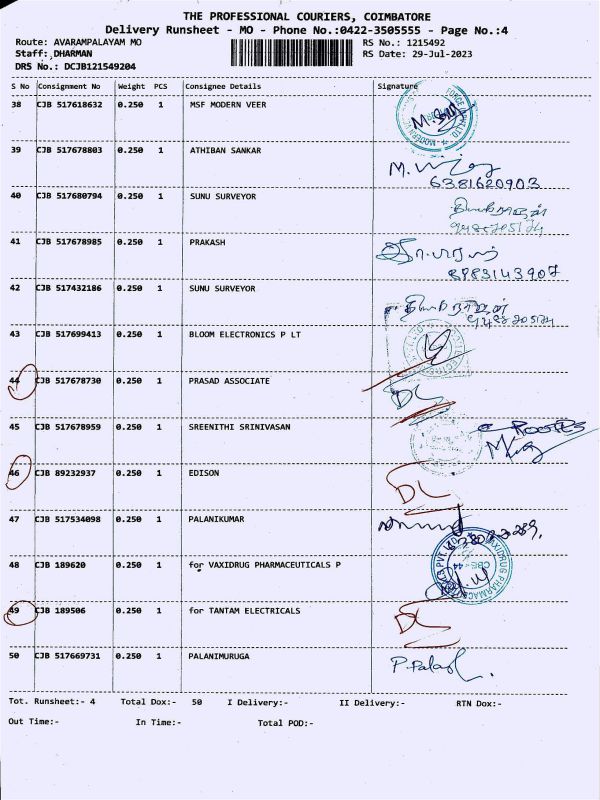 THE PROFESSIONAL COURIERS, COIMBATORE
Delivery Runsheet - MO - Phone No.:0422-3505555 - Page No.:4
Route: AVARAMPALAYAM MO RS No.: 1215492
Staff: DHARMAN RS Date: 29-Jul-2023
DRS No.: DCJB121549204
S No Consignment No Weight PCS Consignee Details Signature
38 CJB 517618632 0.250 1 MSF MODERN VEER
39 CJB 517678803 0.250 1 ATHIBAN SANKAR
6381620903
40 CJB 517680794 0.250 1 SUNU SURVEYOR
41 CJB 517678985 0.250 1 PRAKASH
8883143907
42 CJB 517432186 0.250 1 SUNU SURVEYOR
43 CJB 517699413 0.250 1 BLOOM ELECTRONICS P LT
44 CJB 517678730 0.250 1 PRASAD ASSOCIATE DL
45 CJB 517678959 0.250 1 SREENITHI SRINIVASAN
46 CJB 89232937 0.250 1 EDISON DL
47 CJB 517534098 0.250 1 PALANIKUMAR
48 CJB 189620 0.250 1 for VAXIDRUG PHARMACEUTICALS P
49 CJB 189506 0.250 1 for TANTAM ELECTRICALS DL
50 CJB 517669731 0.250 1 PALANIMURUGA
Tot. Runsheet:- 4 Total Dox:- 50 I Delivery:- II Delivery:- RTN Dox:-
Out Time:- In Time:- Total POD:-